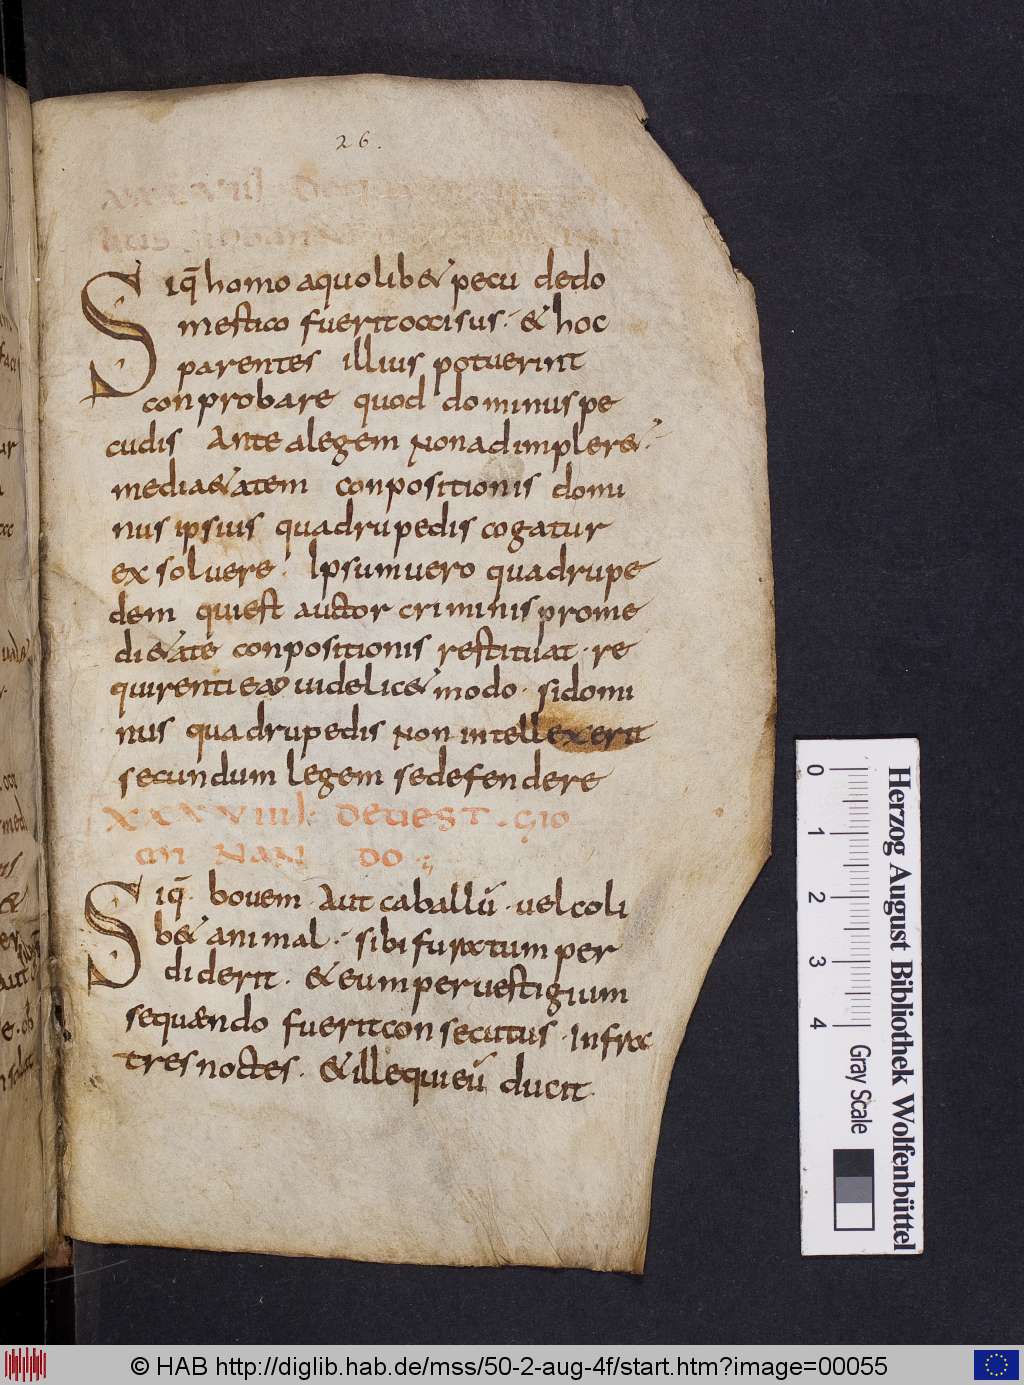 26.
XXXVIII De
bus
Siq̄ homo aquolib& pecu dedo
mestico fuerit occisus · & hoc
parentes illius potuerint
conprobare quod dominus pe
cudis Ante alegem Nonadimplere&·
mediae&atem conpositionis domi
nus ipsius quadrupedis cogatur
exsolvere · Ipsum uero quadrupe
dem qui est auctor criminis prome
di&ate conpositionis restituat · re
quirenti eo uidelic& modo · si domi
nus quadrupedis Non intellexerit
secundum legem se defendere
XXXVIIII· DE UEST·GIO
MI NAN DO·;
Siq̄· bouem · Aut caballū · uel coli
b& animal · sibi furtum per
diderit · & eum per uestigium
sequendo fuerit consecutus · Infra
tres noctes · & ille qui eū ducit·
Herzog August Bibliothek Wolfenbüttel
0 1 2 3 4
Gray Scale
© HAB http://diglib.hab.de/mss/50-2-aug-4f/start.htm?image=00055